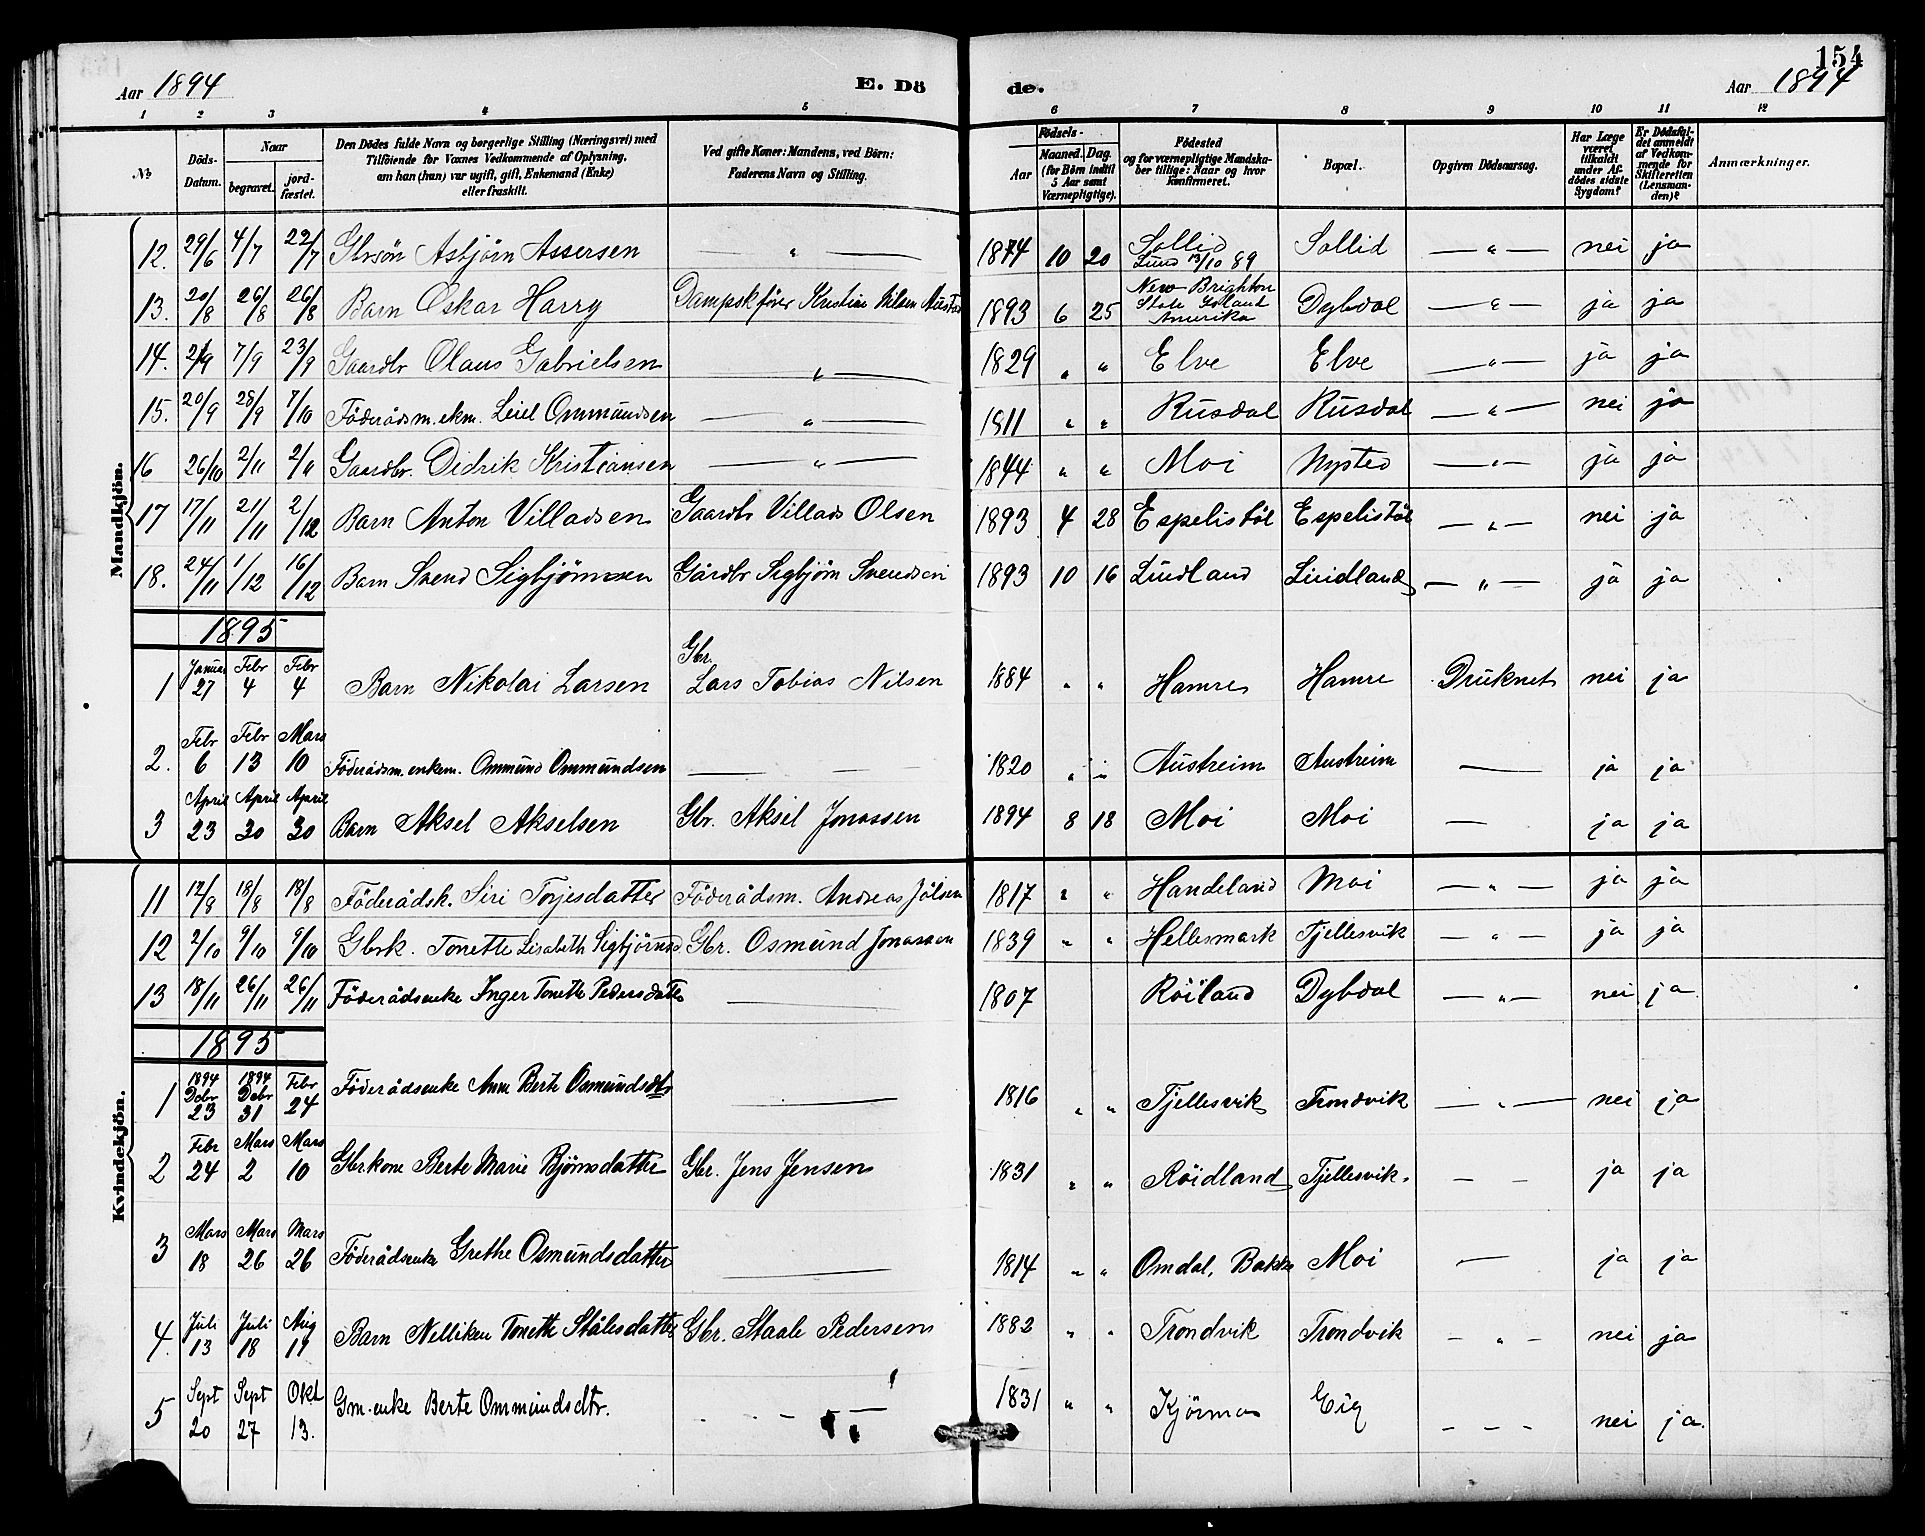 154
Aar 1894 E. Dö de. Aar 1894
1 2 3 4 5 6 7 8 9 10 11 12
№ Döds-Datum. Naar begravet. jord-fæstet. Den Dödes fulde Navn og borgerlige Stilling (Næringsvei) med Tilföiende for Voxnes Vedkommende af Oplysning, om han (hun) var ugift, gift, Enkemand (Enke) eller fraskilt. Ved gifte Koner: Mandens, ved Börn: Faderens Navn og Stilling. Födsels- Aar Maaned. Dag. (for Börn indtil 5 Aar samt Værnepligtige). Födested og for værnepligtige Mandskaber tillige: Naar og hvor konfirmeret. Bopæl. Opgiven Dödsaarsag. Har Læge været tilkaldt under Afdödes sidste Sygdom? Er Dödsfaldet anmeldt af Vedkommende for Skifteretten (Lensmanden)? Anmærkninger.
Mandkjön.
12. 29/6 4/7 22/7 Gbrsön Asbjörn Assersen — " — 1874 10 20 Sollid Lund 13/10 89 Sollid — " — nei ja
13. 20/8 26/8 26/8 Barn Oskar Harry Dampskförer Kristian Nilsen 1893 6 25 New Brighton State Island Amerika Dybdal — " — ja ja
14. 2/9 7/9 23/9 Gaardbr Olaus Gabrielsen — " — 1829 " " Elve Elve — " — ja ja
15. 20/9 28/9 7/10 Föderådsm. ekm. Leiel Ommundsen — " — 1811 " " Rusdal Rusdal — " — nei ja
16 26/10 2/11 2/11 Gaardbr. Didrik Kristiansen — " — 1844 " " Moi Nysted — " — ja ja
17 17/11 21/11 2/12 Barn Anton Villadsen Gaardbr Villads Olsen 1893 4 28 Espelistöl Espelistöl — " — nei ja
18. 24/11 1/12 16/12 Barn Svend Sigbjörnsen Gårdbr Sigbjörn Svendsen 1893 10 16 Lindland Lindland — " — ja ja
1895
1 Januar 27 Febr 4 Febr 4 Barn Nikolai Larsen Gbr. Lars Tobias Nilsen 1884 " " Hamre Hamre Druknet nei ja
2. Febr 6 Febr 13 Mars 10 Föderådsm. enkem. Ommund Ommundsen — — 1820 " " Austreim Austreim — ja ja
3 April 23 April 30 April 30 Barn Aksel Akselsen Gbr. Aksel Jonassen 1894 8 18 Moi Moi — ja ja
Kvindekjön.
11 12/8 18/8 18/8 Föderådsk. Siri Torjesdatter Föderådsm. Andreas Jölsen 1817 " " Handeland Moi — " — ja ja
12 2/10 9/10 9/10 Gbrk. Tonette Lisabeth Sigbjörnsd Gbr. Osmund Jonassen 1839 " " Hellesmark Tjellesvik — " — ja ja
13 18/11 26/11 26/11 Föderådsenke Inger Tonette Pedersdatter — 1807 Röiland Dybdal — " — nei ja
1895
1 1894 Debr 23 1894 Debr 31 Febr 24 Föderådsenke Anne Berte Osmundsdtr — 1816 " " Tjellesvik Trondvik — " — nei ja
2 Febr 24 Mars 2 Mars 10 Gbrkone Berte Marie Bjömsdatter Gbr. Jens Jensen 1831 " " Röidland Tjellesvik. — — ja ja
3 Mars 18 Mars 26 Mars 26 Föderådsenke Grethe Osmundsdatter — 1814 " " Omdal, Bakke Moi — ja ja
4. Juli 13 Juli 18 Aug 19 Barn Nelliken Tonette Ståhlesdatter Gbr. Staale Pedersen 1882 " " Trondvik Trondvik — " — nei ja
5 Sept 20 Sept 27 Okt 13. Gm. enke Berte Ommundsdtr. — — 1831 " " Kjörmo Eig — — — nei ja.